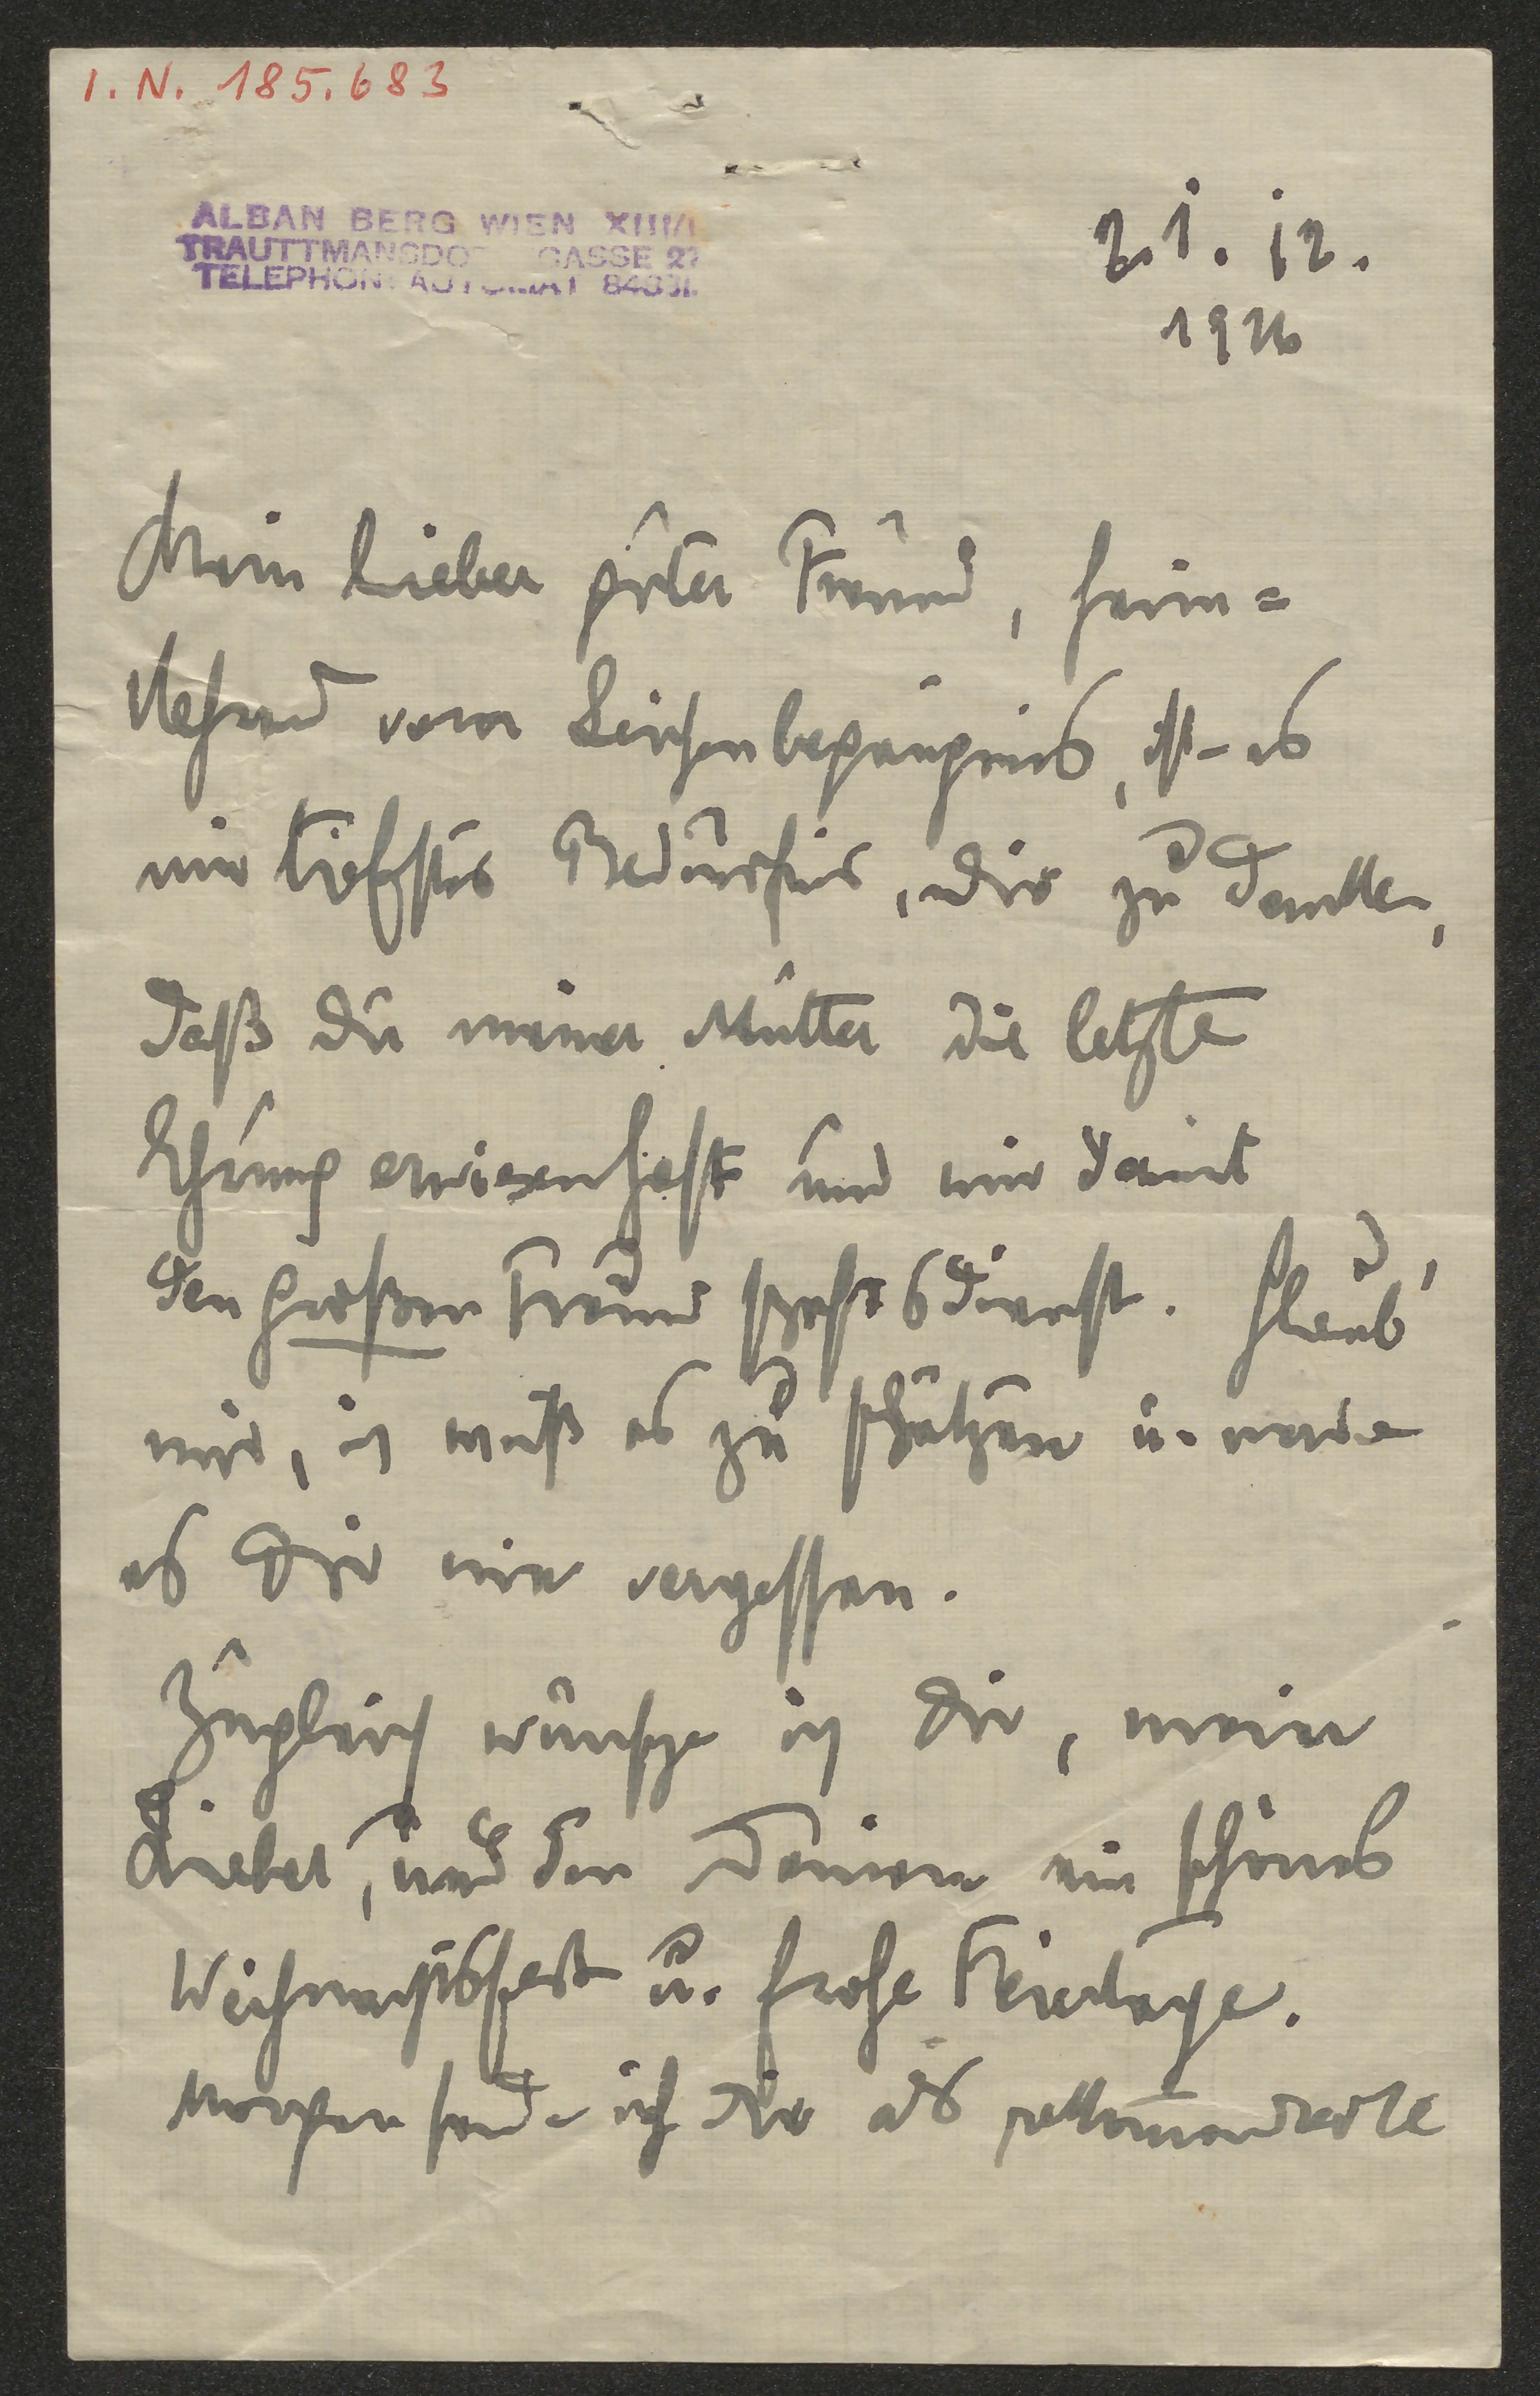 I. N. 185.683
ALBAN BERG WIEN XIII/1
TRAUTTMANSDO GASSE 27
TELEPHON: AUTOMAT
21. 12.
1926
Mein lieber guter Freund, heim=
kehrend vom Leichenbegängnis, ist es
mir tiefstes Bedürfnis, Dir zu danken,
daß Du meiner Mutter die letzte
Ehrung erwiesen hast und mir damit
den großen Freundschaftsdienst. Glaub'
mir, ich weiß es zu schätzen u. werde
es Dir nie vergessen.
Zugleich wünsche ich Dir, mein
Lieber, und den Deinen ein schönes
Weihnachtsfest u. frohe Feiertage.
Morgen sende ich Dir als rekommandierte